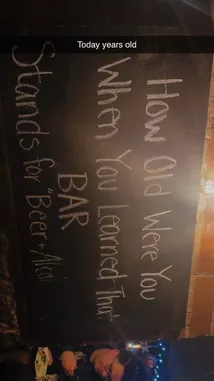 Today years old
How Old Were You
When You Learned That
BAR
Stands for "Beer +